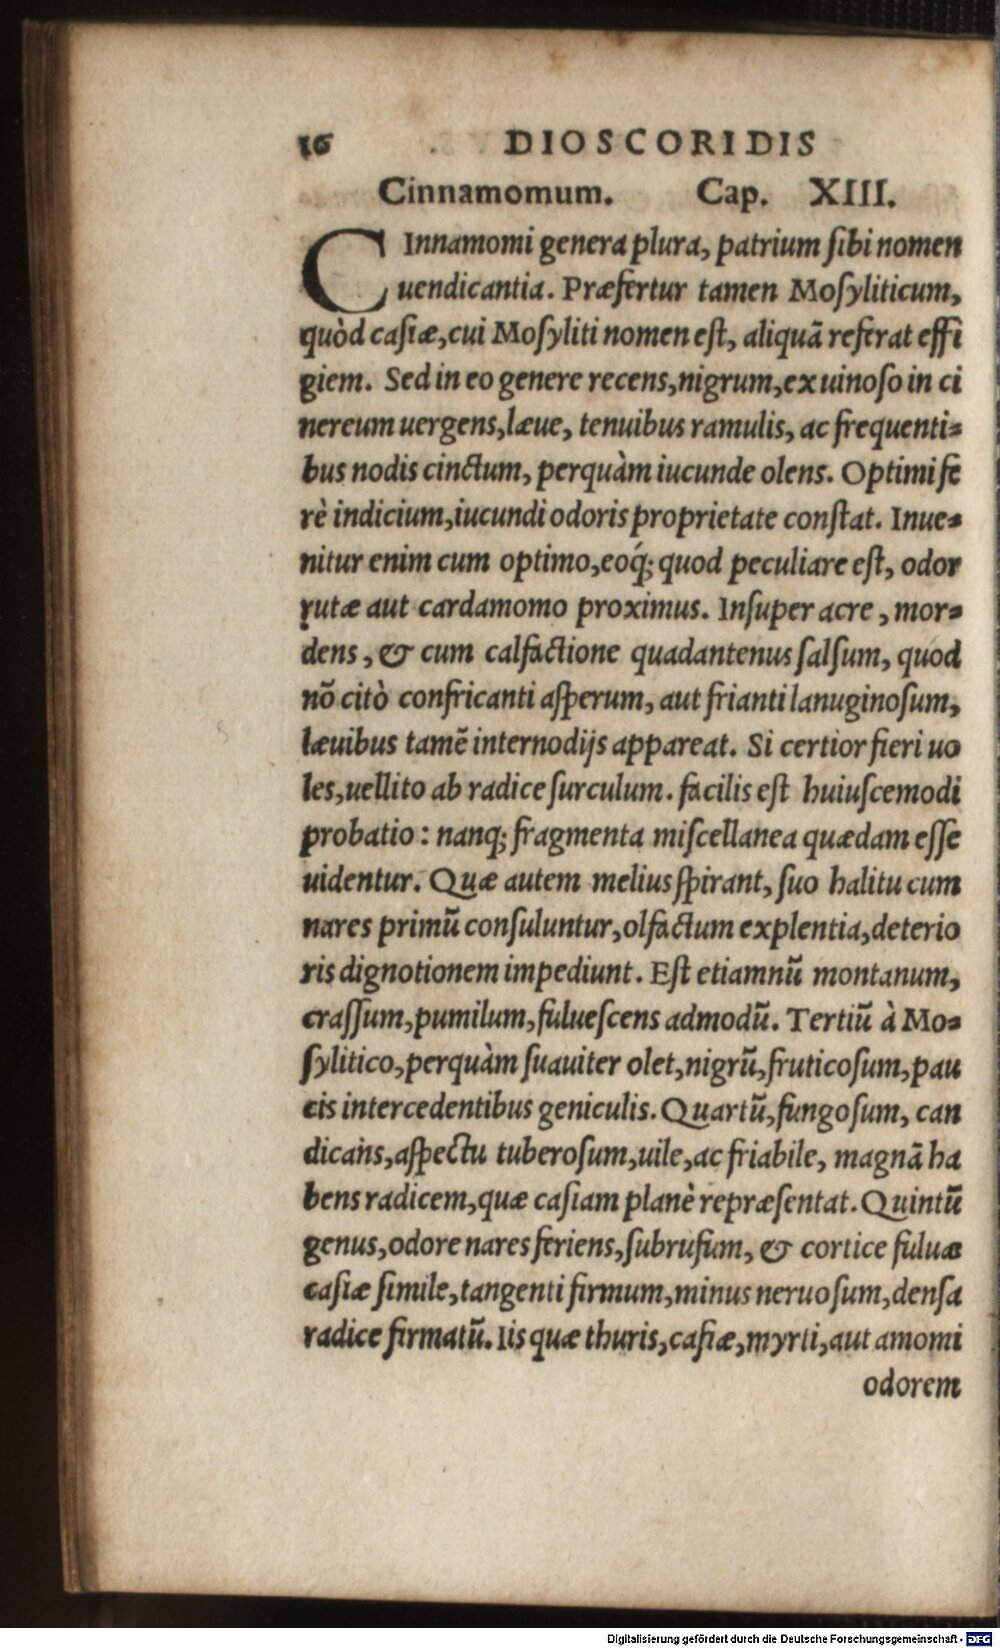 16 DIOSCORIDIS
Cinnamomum. Cap. XIII.
CInnamomi genera plura, patrium sibi nomen
uendicantia. Præfertur tamen Mosyliticum,
quòd casiæ, cui Mosyliti nomen est, aliquā referat effi
giem. Sed in eo genere recens, nigrum, ex uinoso in ci
nereum uergens, læue, tenuibus ramulis, ac frequenti-
bus nodis cinctum, perquàm iucunde olens. Optimi fe
rè indicium, iucundi odoris proprietate constat. Inue-
nitur enim cum optimo, eoq́; quod peculiare est, odor
rutæ aut cardamomo proximus. Insuper acre, mor-
dens, & cum calfactione quadantenus salsum, quod
nō citò confricanti asperum, aut frianti lanuginosum,
læuibus tamē internodijs appareat. Si certior fieri uo
les, uellito ab radice surculum. facilis est huiuscemodi
probatio: nanq; fragmenta miscellanea quædam esse
uidentur. Quæ autem melius spirant, suo halitu cum
nares primū consuluntur, olfactum explentia, deterio
ris dignotionem impediunt. Est etiamnū montanum,
crassum, pumilum, fuluescens admodū. Tertiū à Mo-
sylitico, perquàm suauiter olet, nigrū, fruticosum, pau
cis intercedentibus geniculis. Quartū, fungosum, can
dicans, aspectu tuberosum, uile, ac friabile, magnā ha
bens radicem, quæ casiam planè repræsentat. Quintū
genus, odore nares feriens, subrufum, & cortice fuluæ
casiæ simile, tangenti firmum, minus neruosum, densa
radice firmatū. Iis quæ thuris, casiæ, myrti, aut amomi
odorem
Digitalisierung gefördert durch die Deutsche Forschungsgemeinschaft - DFG